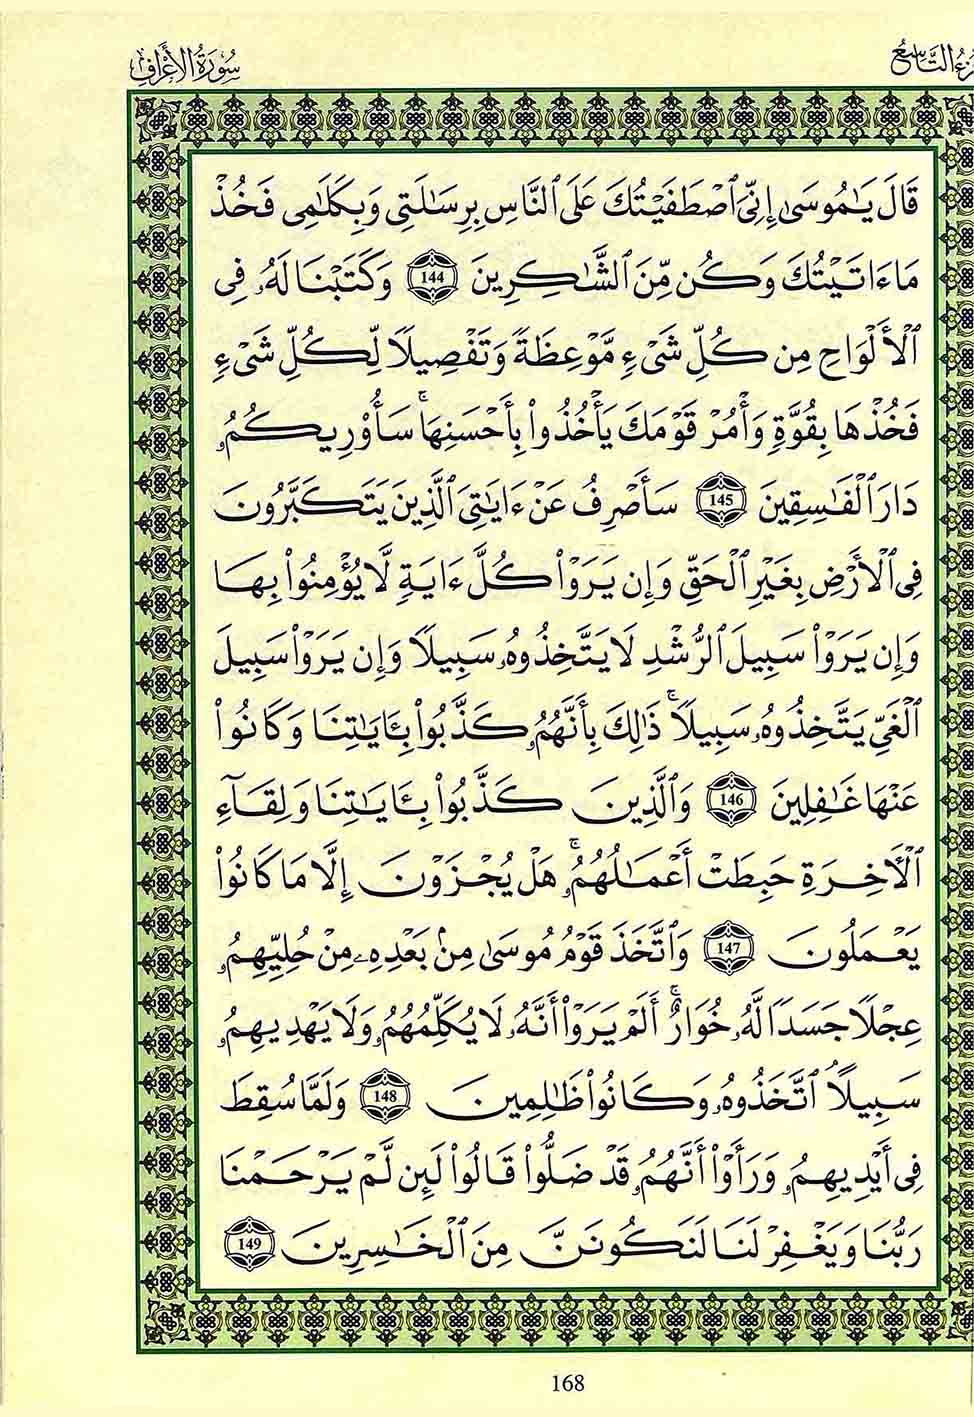 سُورَةُ الأَعْرَافِ
التَّاسِعُ
قَالَ يَٰمُوسَىٰ إِنِّيَ ٱصْطَفَيْتُكَ عَلَى ٱلنَّاسِ بِرِسَٰلَتِي وَبِكَلَٰمِي فَخُذْ
مَا ءَاتَيْتُكَ وَكُن مِّنَ ٱلشَّٰكِرِينَ 144 وَكَتَبْنَا لَهُۥ فِي
ٱلْأَلْوَاحِ مِن كُلِّ شَيْءٍ مَّوْعِظَةً وَتَفْصِيلًا لِّكُلِّ شَيْءٍ
فَخُذْهَا بِقُوَّةٍ وَأْمُرْ قَوْمَكَ يَأْخُذُوا۟ بِأَحْسَنِهَاۚ سَأُو۟رِيكُمُۥ
دَارَ ٱلْفَٰسِقِينَ 145 سَأَصْرِفُ عَنْ ءَايَٰتِيَ ٱلَّذِينَ يَتَكَبَّرُونَ
فِي ٱلْأَرْضِ بِغَيْرِ ٱلْحَقِّ وَإِن يَرَوْا۟ كُلَّ ءَايَةٍ لَّا يُؤْمِنُوا۟ بِهَا
وَإِن يَرَوْا۟ سَبِيلَ ٱلرُّشْدِ لَا يَتَّخِذُوهُۥ سَبِيلًا وَإِن يَرَوْا۟ سَبِيلَ
ٱلْغَيِّ يَتَّخِذُوهُۥ سَبِيلًاۚ ذَٰلِكَ بِأَنَّهُمُۥ كَذَّبُوا۟ بِـَٔايَٰتِنَا وَكَانُوا۟
عَنْهَا غَٰفِلِينَ 146 وَٱلَّذِينَ كَذَّبُوا۟ بِـَٔايَٰتِنَا وَلِقَآءِ
ٱلْأَخِرَةِ حَبِطَتْ أَعْمَٰلُهُمُۥۚ هَلْ يُجْزَوْنَ إِلَّا مَا كَانُوا۟
يَعْمَلُونَ 147 وَٱتَّخَذَ قَوْمُ مُوسَىٰ مِنۢ بَعْدِهِۦ مِنْ حُلِيِّهِمُۥ
عِجْلًا جَسَدًا لَّهُۥ خُوَارٌۚ أَلَمْ يَرَوْا۟ أَنَّهُۥ لَا يُكَلِّمُهُمُۥ وَلَا يَهْدِيهِمُۥ
سَبِيلًا ٱتَّخَذُوهُۥ وَكَانُوا۟ ظَٰلِمِينَ 148 وَلَمَّا سُقِطَ
فِي أَيْدِيهِمُۥ وَرَأَوْا۟ أَنَّهُمُۥ قَدْ ضَلُّوا۟ قَالُوا۟ لَئِن لَّمْ يَرْحَمْنَا
رَبُّنَا وَيَغْفِرْ لَنَا لَنَكُونَنَّ مِنَ ٱلْخَٰسِرِينَ 149
168